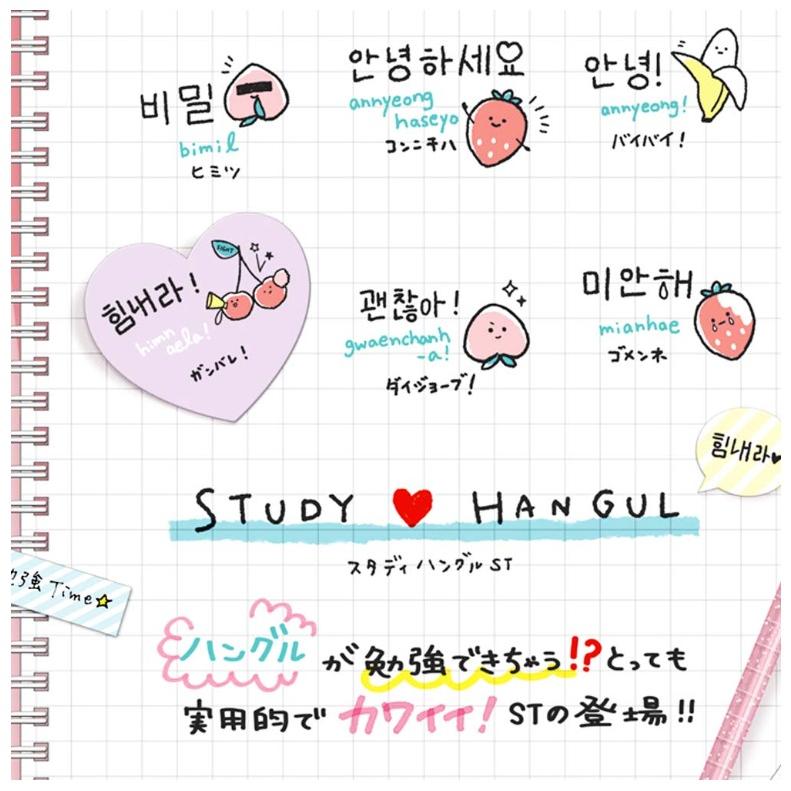 비밀
bimil
ヒミツ
안녕하세요
annyeong
haseyo
コンニチハ
안녕!
annyeong!
バイバイ!
힘내라!
FIGHT
himn
aela!
ガンバレ!
괜찮아!
gwaenchanh
-a!
ダイジョーブ!
미안해
mianhae
ゴメンネ
힘내라♥
STUDY ♥ HANGUL
スタディハングルST
強 Time☆
ハングルが勉強できちゃう!?とっても
実用的でカワイイ! STの登場!!